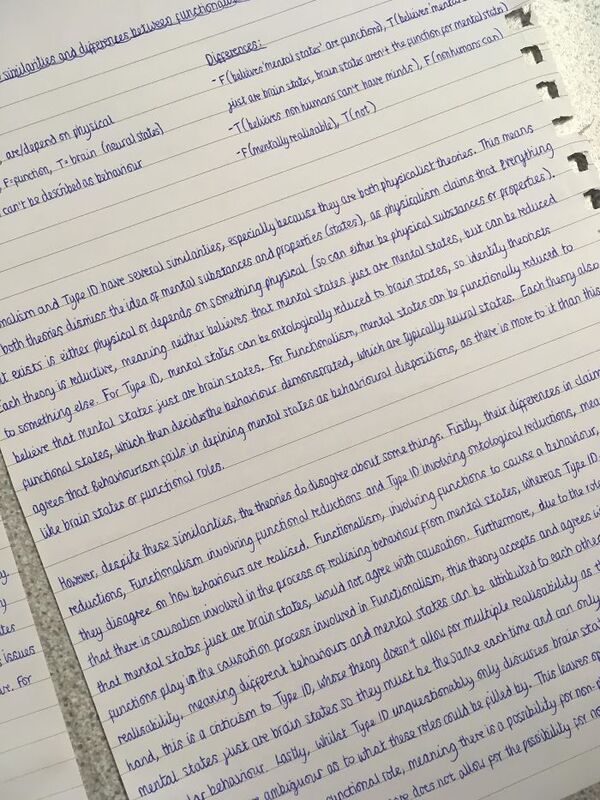 similarities and differences between functionalis
Differences:
-F(believes 'mental states' are functions), T(believes 'mental
just are brain states, brain states aren't the function for mental states)
-T(believes non humans can't have minds), F(nonhumans can)
-F(mentally realisable), T(not)
, are/depend on physical
F=function, T=brain (neural states)
can't be described as behaviour
nalism and Type ID have several similarities, especially because they are both physicalist theories. This means
both theories dismiss the idea of mental substances and properties (states), as physicalism claims that everything
t exists is either physical or depends on something physical (so can either be physical substances or properties).
Each theory is reductive, meaning neither believes that mental states just are mental states, but can be reduced
to something else. For Type ID, mental states can be ontologically reduced to brain states, so identity theorists
believe that mental states just are brain states. For Functionalism, mental states can be functionally reduced to
functional states, which then decides the behaviour demonstrated, which are typically neural states. Each theory also
agrees that Behaviourism fails in defining mental states as behavioural dispositions, as there is more to it than this
like brain states or functional roles.
However, despite these similarities, the theories do disagree about some things. Firstly, their differences in claim
reductions, Functionalism involving functional reductions and Type ID involving ontological reductions, mea
they disagree on how behaviours are realised. Functionalism, involving functions to cause a behaviour,
that there is causation involved in the process of realising behaviour from mental states, whereas Type ID
that mental states just are brain states, would not agree with causation. Furthermore, due to the role
functions play in the causation process involved in Functionalism, this theory accepts and agrees wi
realisability, meaning different behaviours and mental states can be attributed to each other
hand, this is a criticism to Type ID, whose theory doesn't allow for multiple realisability as th
mental states just are brain states so they must be the same each time and can only
lar behaviour. Lastly, whilst Type ID unquestionably only discusses brain stat
ambiguous as to what these roles could be filled by. This leaves op
functional role, meaning there is a possibility for non-p
does not allow for the possibility for no
issues
ve. For